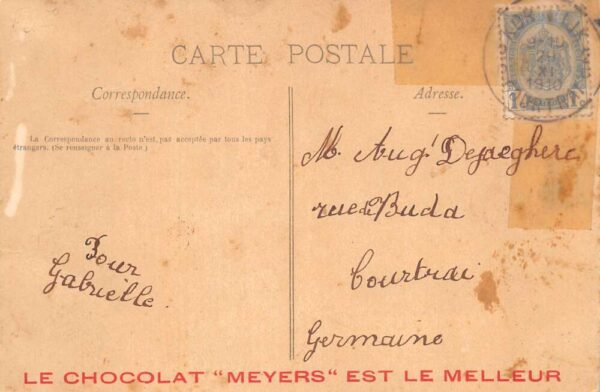 CARTE POSTALE
Correspondance.
Adresse.
La Correspondance au recto n'est pas acceptée par tous les pays
étrangers. (Se renseigner à la Poste)
M. Aug! Dejaeghere
rue de Buda
Courtrai
Germaine
Pour
Gabrielle.
LE CHOCOLAT "MEYERS" EST LE MELLEUR